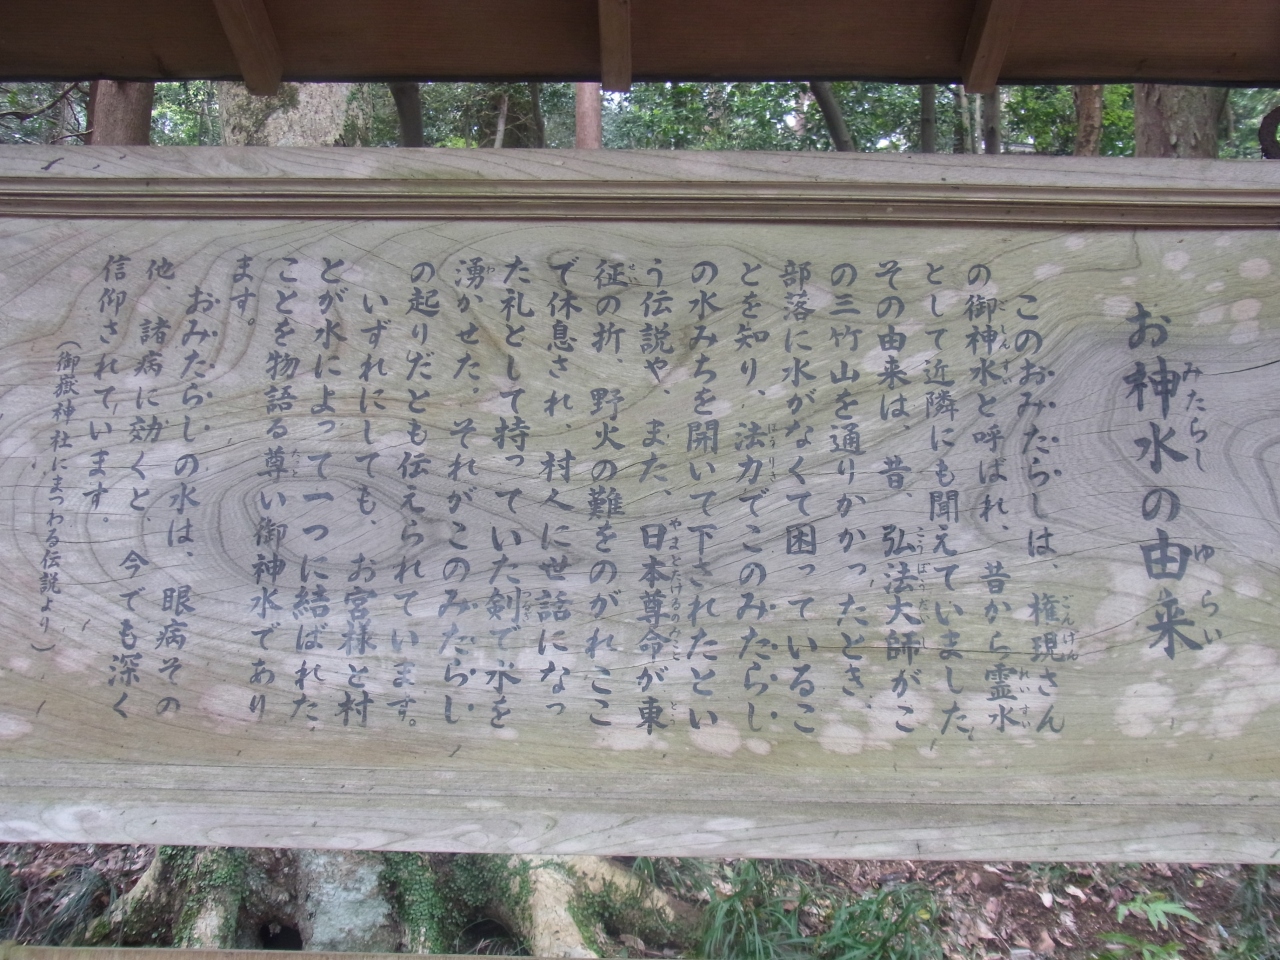 お神水の由来
このおみたらしは、権現さん
の御神水と呼ばれ、昔から霊水
として近隣にも聞えていました。
その由来は、昔、弘法大師がこ
の三竹山を通りかかったとき、
部落に水がなくて困っているこ
とを知り、法力でこのみたらし
の水みちを開いて下されたとい
う伝説や、また、日本尊命が東
征の折、野火の難をのがれここ
で休息され、村人に世話になっ
た礼として持っていた剣で水を
湧かせた。それがこのみたらし
の起りだとも伝えられています。
いずれにしても、お宮様と村
とが水によって一つに結ばれた
ことを物語る尊い御神水であり
ます。
おみたらしの水は、眼病その
他、諸病に効くと、今でも深く
信仰されています。
(御嶽神社にまつわる伝説より)